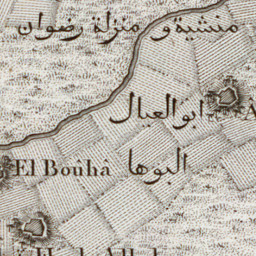 منشية و منزلة رضوان
ابو العيال
El Boûhâ البوها